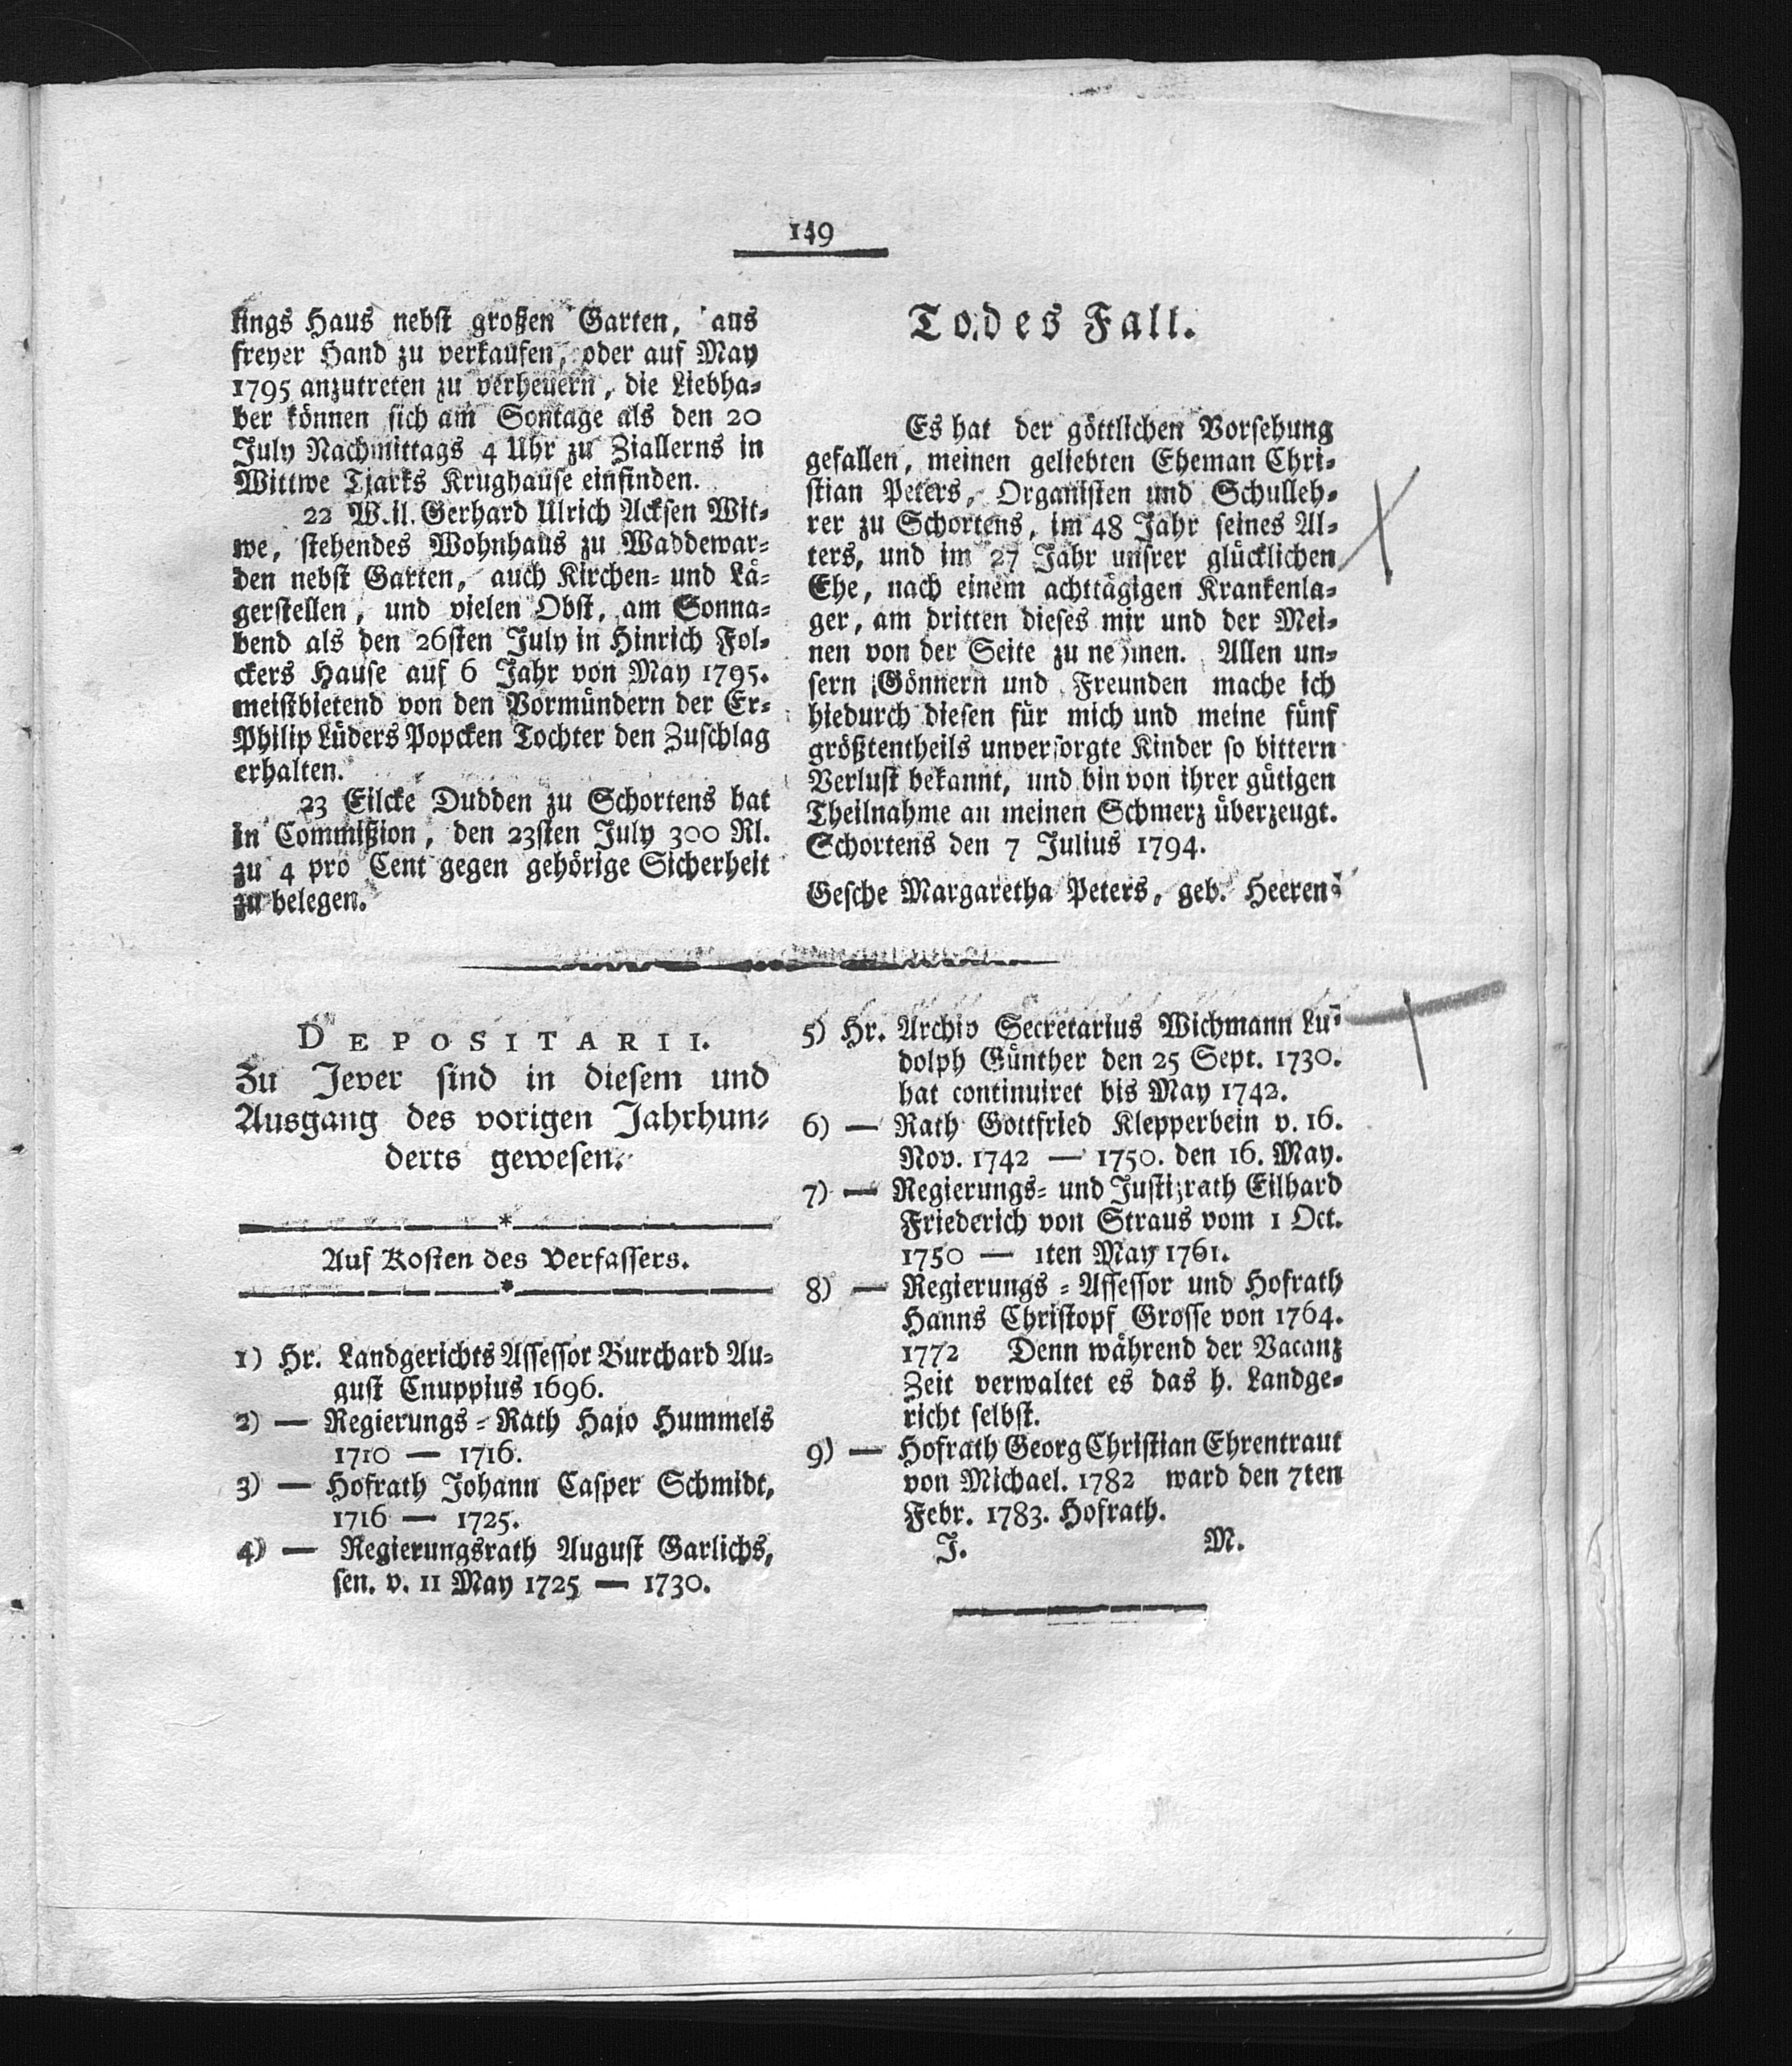 149
lings Haus nebst großen Garten, aus
freyer Hand zu verkaufen, oder auf May
1795 anzutreten zu verheuern, die Liebha-
ber können sich am Sontage als den 20
July Nachmittags 4 Uhr zu Ziallerns in
Wittwe Tjarks Krughause einfinden.
22 Weil. Gerhard Ulrich Acksen Wit-
we, stehendes Wohnhaus zu Waddewar-
den nebst Garten, auch Kirchen- und Lä-
gerstellen, und vielen Obst, am Sonna-
bend als den 26sten July in Hinrich Fol-
ckers Hause auf 6 Jahr von May 1795.
meistbietend von den Vormündern der Er-
Philip Lüders Popcken Tochter den Zuschlag
erhalten.
23 Eilcke Dudden zu Schortens hat
in Commißion, den 23sten July 300 Rl.
zu 4 pro Cent gegen gehörige Sicherheit
zu belegen.
Todes Fall.
Es hat der göttlichen Vorsehung
gefallen, meinen geliebten Eheman Chri-
stian Peters, Organisten und Schulleh-
rer zu Schortens, im 48 Jahr seines Al-
ters, und im 27 Jahr unsrer glücklichen
Ehe, nach einem achttägigen Krankenla-
ger, am dritten dieses mir und der Mei-
nen von der Seite zu nehmen. Allen un-
sern Gönnern und Freunden mache ich
hiedurch diesen für mich und meine fünf
größtentheils unversorgte Kinder so bittern
Verlust bekannt, und bin von ihrer gütigen
Theilnahme an meinen Schmerz überzeugt.
Schortens den 7 Julius 1794.
Gesche Margaretha Peters, geb. Heeren.
DEPOSITARII.
Zu Jever sind in diesem und
Ausgang des vorigen Jahrhun-
derts gewesen.
*
Auf Kosten des Verfassers.
*
1) Hr. Landgerichts Assessor Burchard Au-
gust Cnuppius 1696.
2) — Regierungs-Rath Hajo Hummels
1710 — 1716.
3) — Hofrath Johann Casper Schmidt,
1716 — 1725.
4) — Regierungsrath August Garlichs,
sen. v. 11 May 1725 — 1730.
5) Hr. Archiv Secretarius Wichmann Lu-
dolph Günther den 25 Sept. 1730.
hat continuiret bis May 1742.
6) — Rath Gottfried Klepperbein v. 16.
Nov. 1742 — 1750. den 16. May.
7) — Regierungs- und Justizrath Eilhard
Friederich von Straus vom 1 Oct.
1750 — 1ten May 1761.
8) — Regierungs-Assessor und Hofrath
Hanns Christopf Grosse von 1764.
1772 Denn während der Vacanz
Zeit verwaltet es das h. Landge-
richt selbst.
9) — Hofrath Georg Christian Ehrentraut
von Michael. 1782 ward den 7ten
Febr. 1783. Hofrath.
J. M.